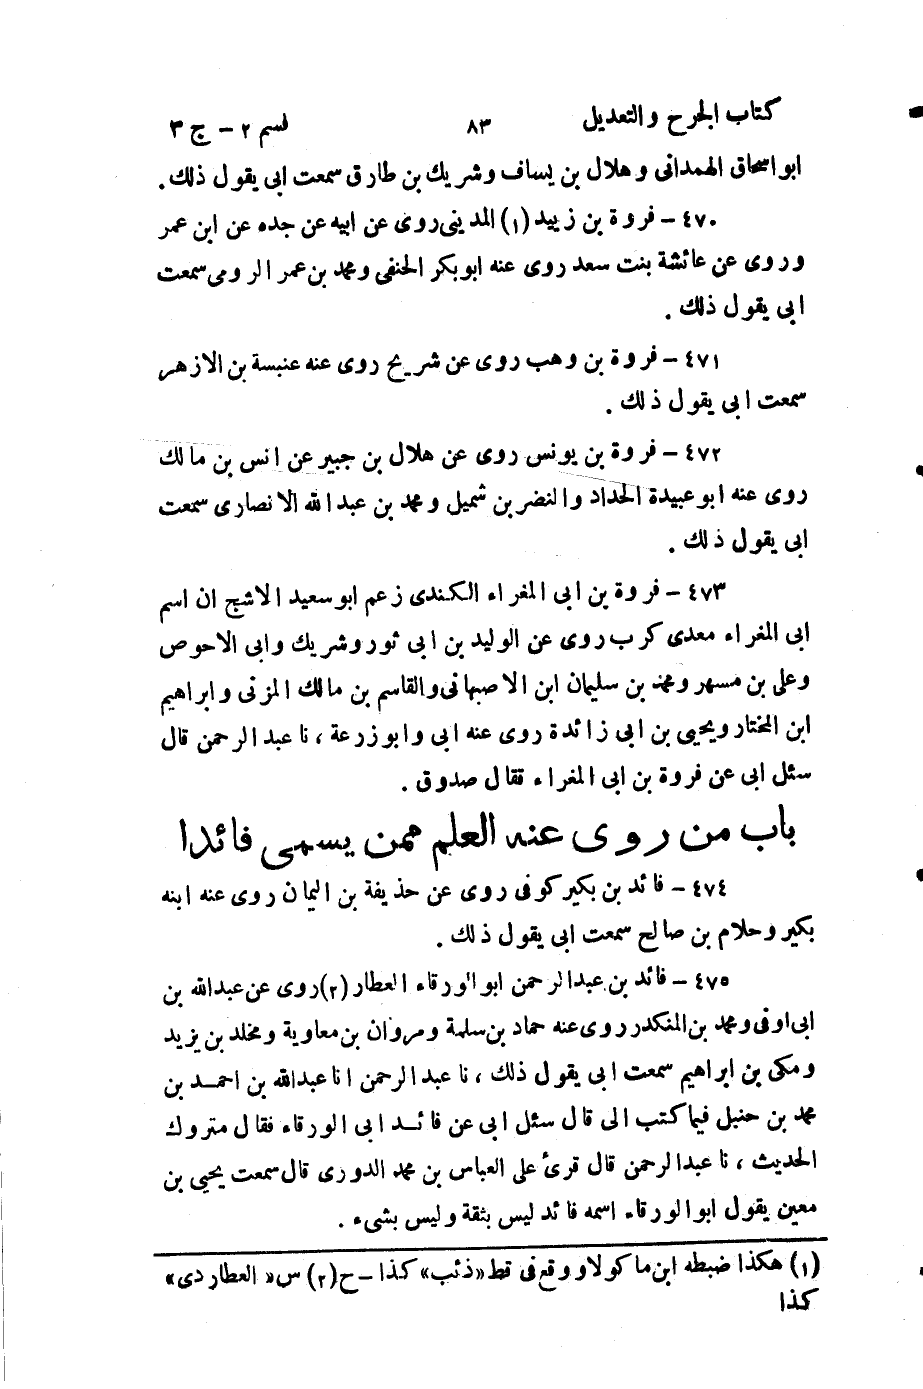 كتاب الجرح والتعديل ٨٣ قسم ٢ - ج ٣
ابو اسحاق الهمدانى وهلال بن يساف وشريك بن طارق سمعت ابى يقول ذلك.
٤٧٠ - فروة بن زييد (١) المدينى روى عن ابيه عن جده عن ابن عمر
وروى عن عائشة بنت سعد روى عنه ابو بكر الحنفى ومحمد بن عمر الرومى سمعت
ابى يقول ذلك.
٤٧١ - فروة بن وهب روى عن شريح روى عنه عنبسة بن الازهر
سمعت ابى يقول ذلك.
٤٧٢ - فروة بن يونس روى عن هلال بن جبير عن انس بن مالك
روى عنه ابو عبيدة الحداد والنضر بن شميل ومحمد بن عبد الله الانصارى سمعت
ابى يقول ذلك.
٤٧٣ - فروة بن ابى المغراء الكندى زعم ابو سعيد الاشج ان اسم
ابى المغراء معدى كرب روى عن الوليد بن ابى ثور وشريك وابى الاحوص
وعلى بن مسهر ومحمد بن سليمان ابن الاصبهانى والقاسم بن مالك المزنى وابراهيم
ابن المختار ويحيى بن ابى زائدة روى عنه ابى وابو زرعة، نا عبد الرحمن قال
سئل ابى عن فروة بن ابى المغراء فقال صدوق.
باب من روى عنه العلم ممن يسمى فائدا
٤٧٤ - فائد بن بكير كوفى روى عن حذيفة بن اليمان روى عنه ابنه
بكير وحلام بن صالح سمعت ابى يقول ذلك.
٤٧٥ - فائد بن عبد الرحمن ابو الورقاء العطار (٢) روى عن عبدالله بن
ابى اوفى ومحمد بن المنكدر روى عنه حماد بن سلمة ومروان بن معاوية ومخلد بن يزيد
ومكى بن ابراهيم سمعت ابى يقول ذلك، نا عبد الرحمن انا عبدالله بن احمد بن
محمد بن حنبل فيما كتب الى قال سئل ابى عن فائد ابى الورقاء فقال متروك
الحديث، نا عبد الرحمن قال قرئ على العباس بن محمد الدورى قال سمعت يحيى بن
معين يقول ابو الورقاء اسمه فائد ليس بثقة وليس بشىء.
(١) هكذا ضبطه ابن ماكولا ووقع فى قط «ذئب» كذا - ح (٢) س «العطاردى»
كذا